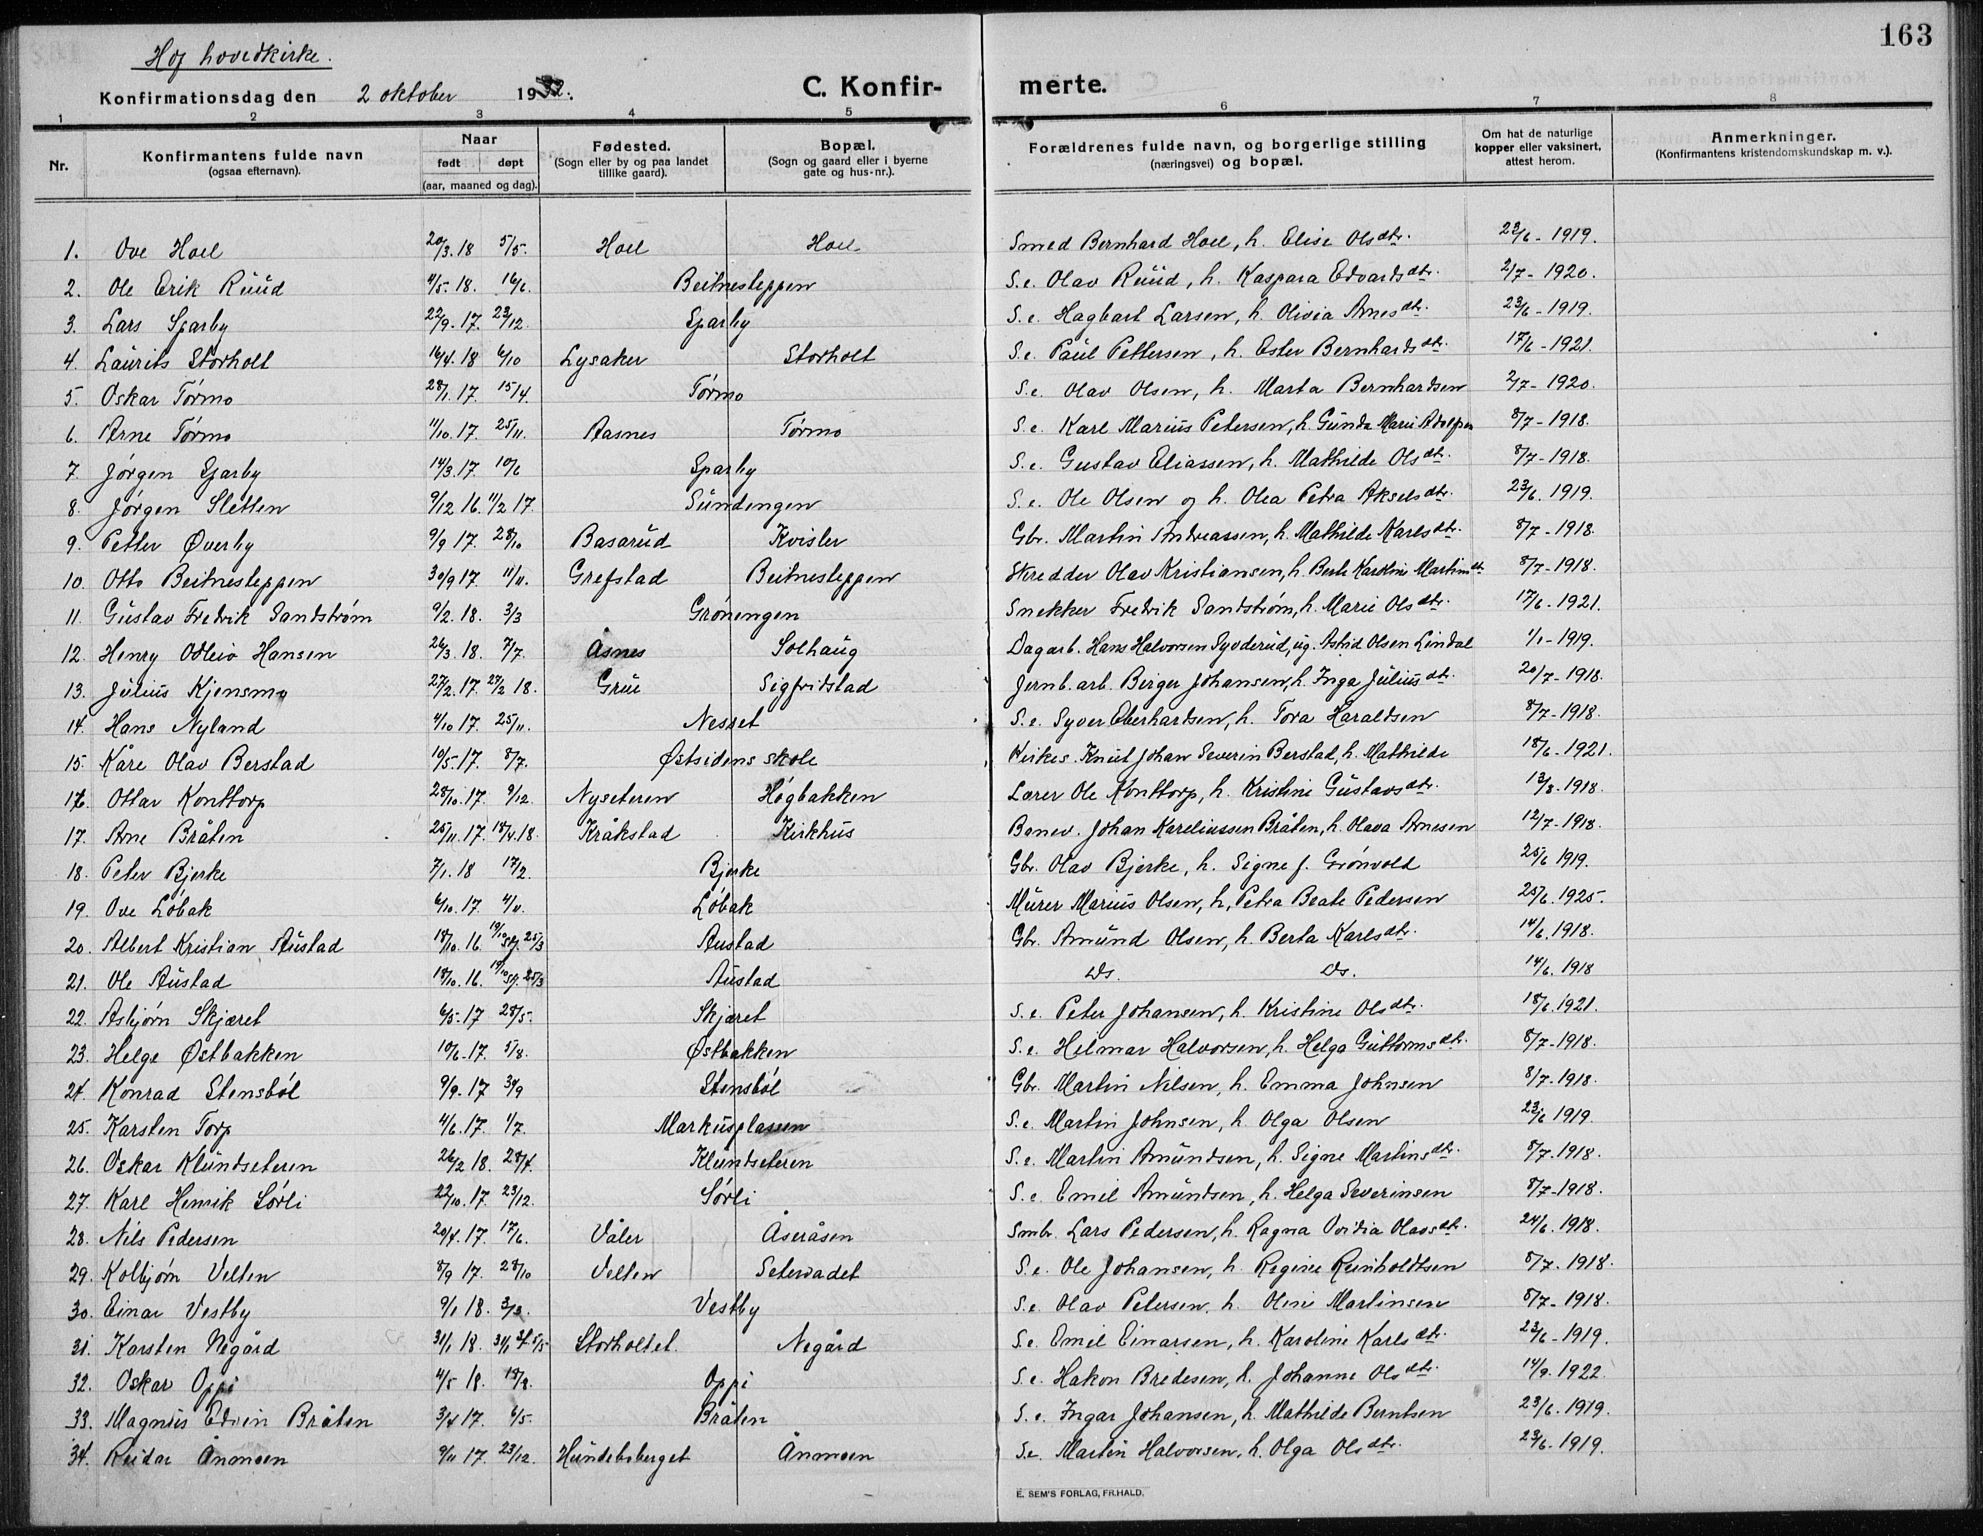 163
Hof hovedkirke.
Konfirmationsdag den 2 oktober 1932. C. Konfir- merte.
1 2 3 4 5 6 7 8
Nr. Konfirmantens fulde navn (ogsaa efternavn). Naar født døpt (aar, maaned og dag). Fødested. (Sogn eller by og paa landet tillike gaard). Bopæl. (Sogn og gaard eller i byerne gate og hus-nr.). Forældrenes fulde navn, og borgerlige stilling (næringsvei) og bopæl. Om hat de naturlige kopper eller vaksinert, attest herom. Anmerkninger. (Konfirmantens kristendomskundskap m. v.).
1. Ove Hoel 20/3.18 5/5. Hoel Hoel Smed Bernhard Hoel, h. Elise Olsdtr. 22/6-1919.
2. Ole Erik Ruud 4/5.18. 16/6 Beitnesteppen S.e. Olav Ruud, h. Kaspara Edvardsdtr. 2/7-1920.
3. Lars Sparby 22/9.17. 23/12. Sparby S.e. Hagbart Larsen, h. Olivia Arnesdtr. 23/6-1919.
4. Laurits Storholt 16/4.18 6/10 Lysaker Storholt S.e. Paul Pettersen, h. Ester Bernhardsdtr. 17/6-1921.
5. Oskar Tørmo 28/1.17. 15/4. Tørmo S.e. Olav Olsen, h. Marta Bernhardsen 2/7-1920.
6. Arne Tørmo 11/10.17. 25/11. Aasnes Tørmo S.e. Karl Marius Petersen, h. Gunda Marie Adolfsen 8/7-1918.
7. Jørgen Sparby 14/3.17. 10/6 Sparby S.e. Gustav Eliassen, h. Mathilde Olsdtr. 8/7-1918.
8. Jørgen Sletten 9/12 16. 11/2 17. Sundengen S.e. Ole Olsen og h. Olea Petra Akselsdtr. 23/6. 1919.
9. Petter Øverby 9/9 17. 28/10 Basarud Kvisler Gbr. Martin Andreassen, h. Mathilde Karlsdtr. 8/7-1918.
10. Otto Beitnesteppen 30/9 17. 11/11. Grefstad Beitnesteppen Skredder Olav Kristiansen, h. Berte Karoline Martinsdtr. 8/7-1918.
11. Gustav Fredrik Sandstrøm 9/2.18. 3/3 Grønengen Snekker Fredrik Sandstrøm, h. Marie Olsdtr. 17/6-1921.
12. Henry Odleiv Hansen 26/3.18. 7/7. Åsnes Solhaug Dagarb. Hans Halvorsen Syvderud, ug. Astrid Olsen Lindal 1/1-1919.
13. Julius Kjensmo 27/2.17. 27/2 18. Grue Sigfridstad Jernb.arb. Berger Johansen, h. Inga Juliusdtr. 20/7-1918.
14. Hans Nyland 4/10 17. 25/11. Nesset S.e. Syver Eberhardsen, h. Tora Haraldsen 8/7-1918.
15. Kåre Olav Berstad 10/5.17. 8/7. Østsidens skole Kirkes. Knut Johan Severin Berstad, h. Mathilde 18/6-1921.
16. Ottar Konttorp 28/10.17. 9/12. Nyseteren Høgbakken Lærer Ole Konttorp, h. Kristine Gustavsdtr. 13/8-1918.
17. Arne Bråten 25/11.17. 18/4.18. Kråkstad Kirkhus Banev. Johan Kareliussen Bråten, h. Olava Arnesen 12/7-1918.
18. Peter Bjerke 7/1.18 17/2. Bjerke Gbr. Olav Bjerke, h. Signe f. Grønvold 25/6 1919.
19. Ove Løbak 6/10.17. 4/11. Løbak Murer Marius Olsen, h. Petra Beate Pedersen 25/6.1925.
20. Albert Kristian Austad 18/10.16. 19/10 Austad Gbr. Amund Olsen, h. Berta Karlsdtr. 14/6.1918.
21. Ole Austad 18/10.16. 19/10 Austad Ds. Ds. 14/6.1918
22. Asbjørn Skjæret 6/5.17 28/5. Skjæret S.e. Peter Johansen, h. Kristine Olsdtr. 18/6.1921.
23. Helge Østbakken 10/6-17. 5/8. Østbakken S.e. Helmar Halvorsen, h. Helga Guttormsdtr. 8/7-1918.
24. Konrad Stensbøl 9/9-17 30/9 Stensbøl Gbr. Martin Nilsen, h. Emma Johnsen 8/7-1918.
25. Karsten Torp 4/6.17. 1/7. Markusplassen S.e. Martin Johnsen, h. Olga Olsen 23/6 1919.
26. Oskar Klundseteren 26/2 18. 28/4. Klundseteren S.e. Martin Amundsen, h. Signe Martinsdtr. 8/7-1918.
27. Karl Henrik Sørli 22/10.17. 23/12. Sørli S.e. Emil Amundsen, h. Helga Severinsen 8/7-1918.
28. Nils Pedersen 20/4.17. 17/6. Våler Åseråsen Smbr. Lars Pedersen, h. Ragna Ovidia Olavsdtr. 24/6.1918.
29. Kolbjørn Velten 8/9 17. 28/10 Velten Setervadet S.e. Ole Johansen, h. Regine Reinholdtsen 8/7.1918.
30. Einar Vestby 9/1 18. 3/3. Vestby S.e. Olav Petersen, h. Oline Martinsen 8/7-1918.
31. Karsten Negård 31/1 18. Storholtet. Negård S.e. Emil Einarsen, h. Karoline Karlsdtr. 23/6-1919.
32. Oskar Oppi 4/5 18. 18/8. Oppi S.e. Hakon Bredesen, h. Johanne Olsdtr. 14/9-1922.
33. Magnus Edvin Bråten 3/4 17. 6/5. Bråten S.e. Ingar Johansen, h. Mathilde Berntsen 23/6.1919.
34. Reidar Ånmoen 9/11 17. 23/12. Hundebsberget Ånmoen S.e. Martin Halvorsen, h. Olga Olsdtr. 23/6-1919.
E. SEM'S FORLAG, FR.HALD.